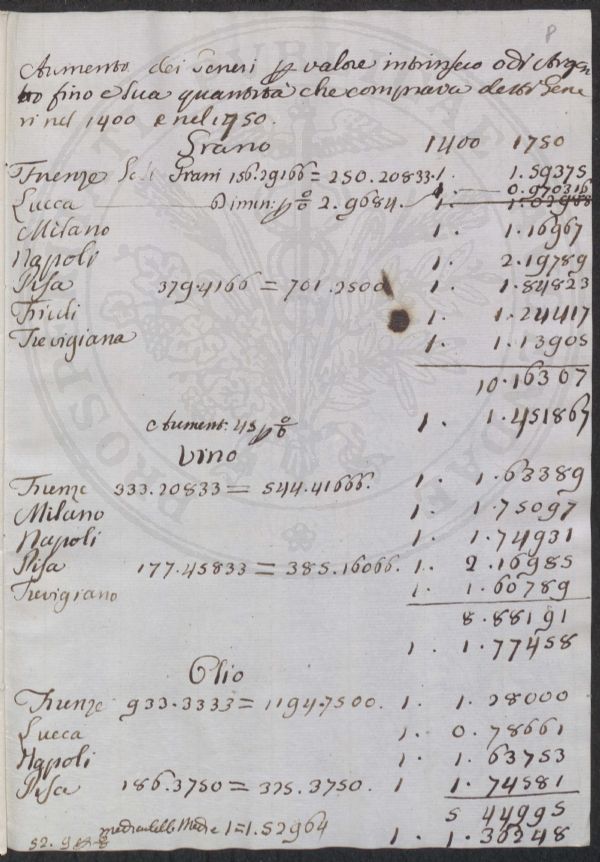 8
Aumento dei Generi p valore intrinseco o di Argen
to fino e Sua quantità che comprava detti Gene
ri nel 1400 e nel 1750.
Grano 1400 1750
Firenze Grani 156.29166 = 250.20833. 1. 1.59375
Lucca Dimin: p % 2.9684. 1. 0.970316
1. 1.02988
Milano 1. 1.16967
Napoli 1. 2.19789
Pisa 379.4166 = 701.2500 1. 1.84823
Friuli 1. 1.24417
Trevigiana 1. 1.13905
10.16367
Aument: 45 p % 1. 1.451867
Vino
Firenze 333.20833 = 544.41666. 1. 1.63389
Milano 1. 1.75097
Napoli 1. 1.74931
Pisa 177.45833 = 385.16066. 1. 2.16985
Trevigiano 1. 1.60789
8.88191
1. 1.77458
Olio
Firenze 933.3333 = 1194.7500. 1. 1.28000
Lucca 1. 0.78661
Napoli 1. 1.63753
Pisa 186.3750 = 325.3750. 1 1.74581
5 44995
media delle Medie 1 = 1.52964
52.9 1. 1.36248